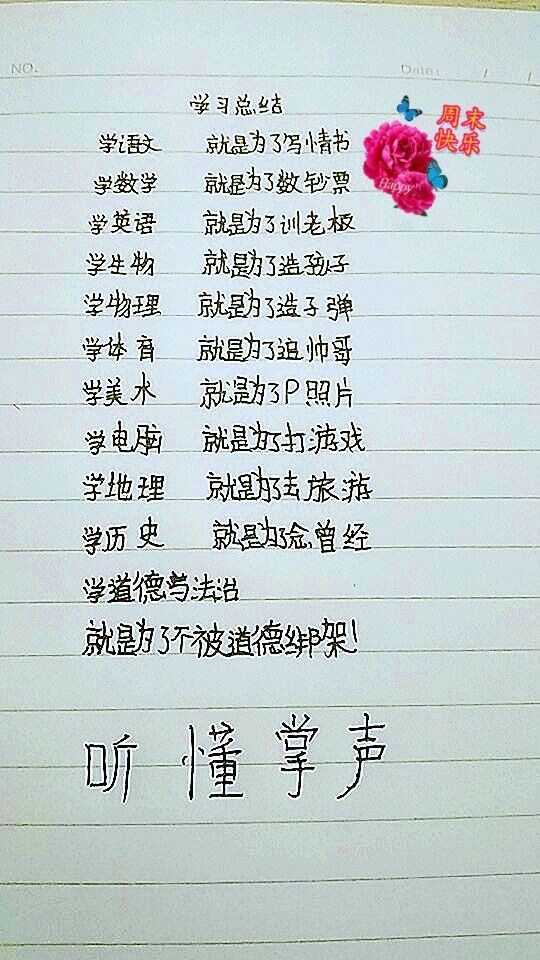 NO.
Date: / /
周末
快乐
Happy
学习总结
学语文 就是为了写情书
学数学 就是为了数钞票
学英语 就是为了训老板
学生物 就是为了造孩子
学物理 就是为了造子弹
学体育 就是为了追帅哥
学美水 就是为了P照片
学电脑 就是为了打游戏
学地理 就是为了去旅游
学历史 就是为了念曾经
学道德与法治
就是为了不被道德绑架!
听懂掌声